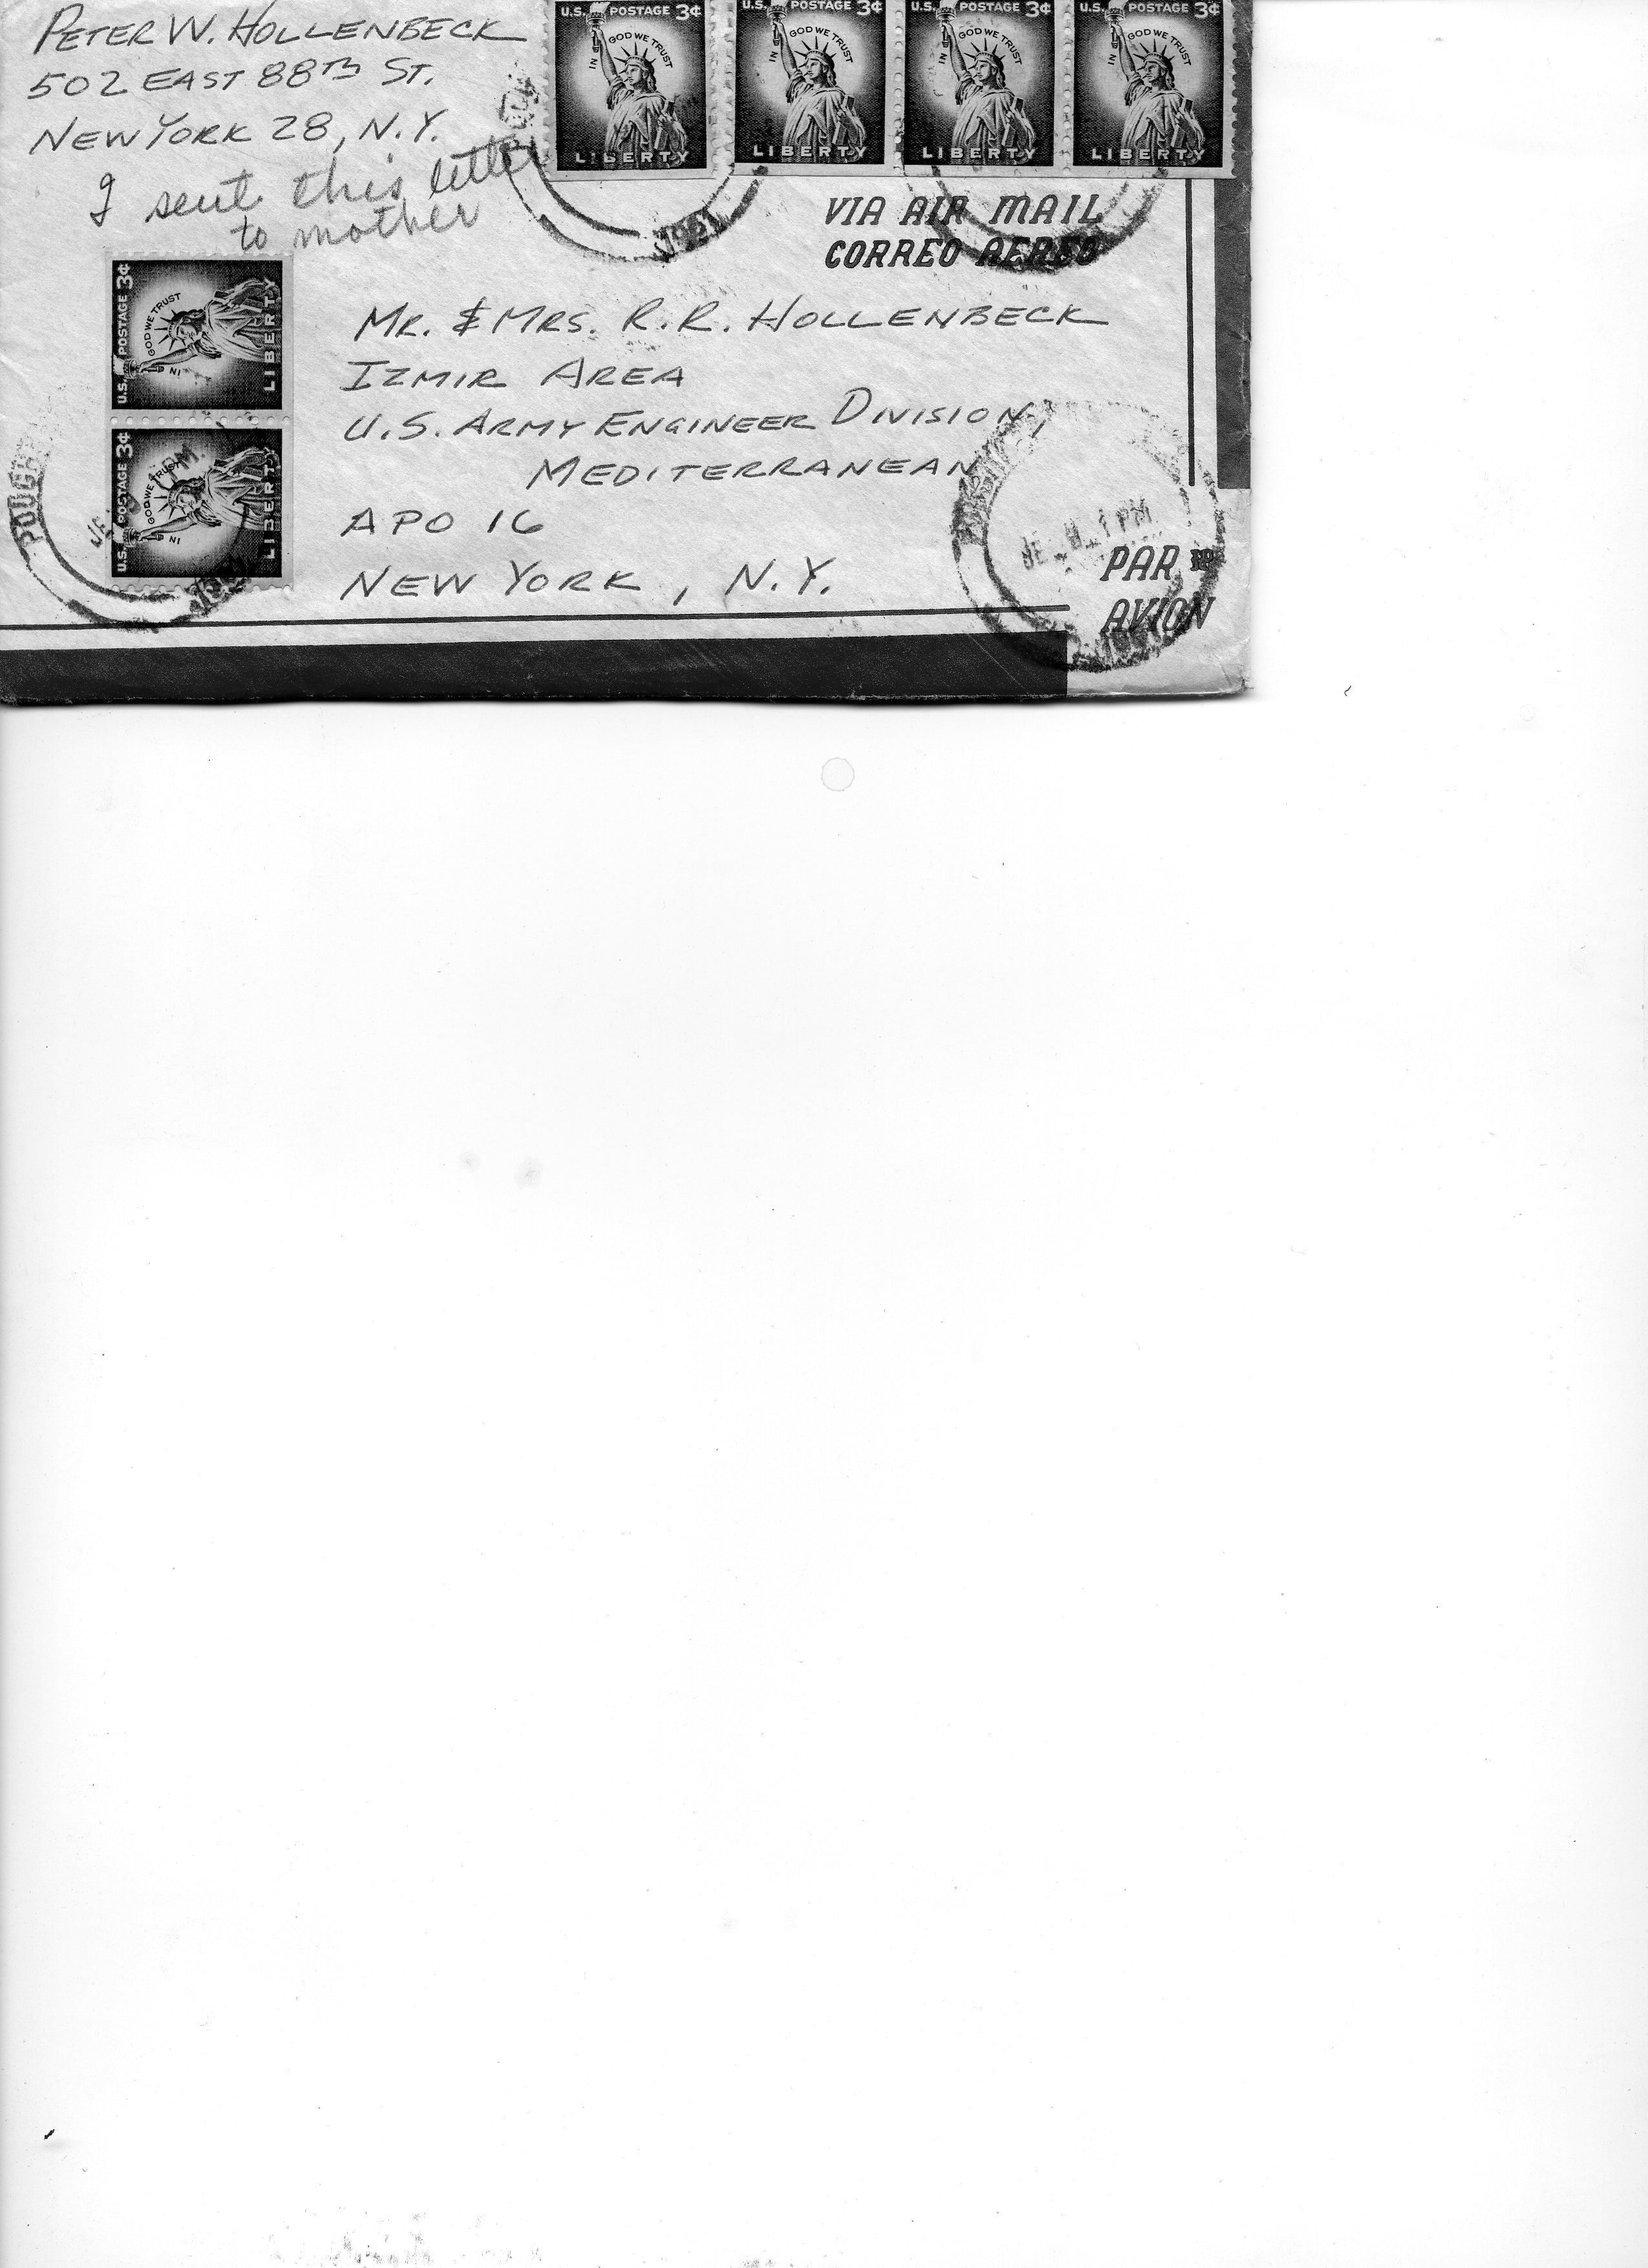 PETER W. HOLLENBECK
502 EAST 88TH ST.
NEW YORK 28, N.Y.
I sent this letter
to mother
U.S. POSTAGE 3¢
IN GOD WE TRUST
LIBERTY
U.S. POSTAGE 3¢
IN GOD WE TRUST
LIBERTY
U.S. POSTAGE 3¢
IN GOD WE TRUST
LIBERTY
U.S. POSTAGE 3¢
IN GOD WE TRUST
LIBERTY
1961
VIA AIR MAIL
CORREO AEREO
U.S. POSTAGE 3¢
IN GOD WE TRUST
LIBERTY
U.S. POSTAGE 3¢
IN GOD WE TRUST
LIBERTY
MR. & MRS. R.R. HOLLENBECK
IZMIR AREA
U.S. ARMY ENGINEER DIVISION,
MEDITERRANEAN
APO 16
NEW YORK, N.Y.
1 PM
PAR
AVION